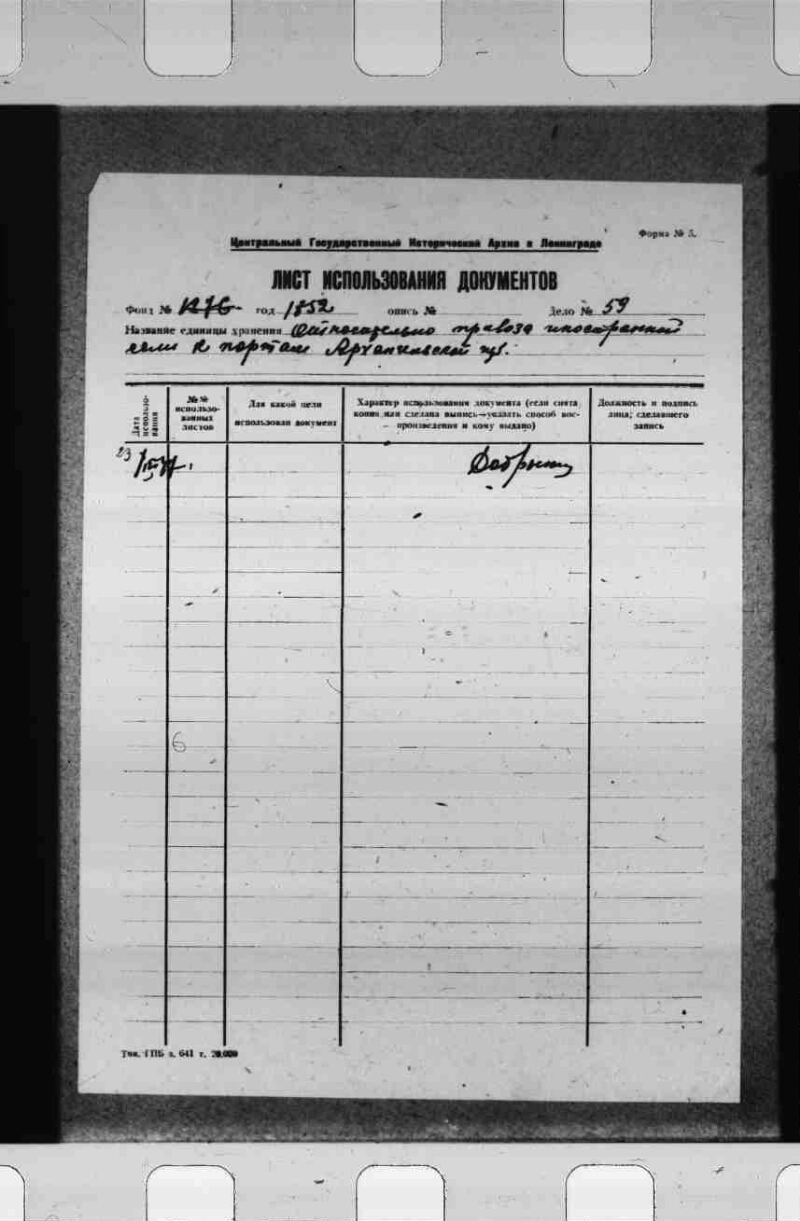 Форма № 5.
Центральный Государственный Исторический Архив в Ленинграде
ЛИСТ ИСПОЛЬЗОВАНИЯ ДОКУМЕНТОВ
Фонд № год 1852 опись № Дело № 59
Название единицы хранения Относительно привоза иностранной
соли к портам Архангельской губ.
Дата использования
№№ использованных листов
Для какой цели
использован документ
Характер использования документа (если снята
копия или сделана выпись—указать способ вос-
производения и кому выдано)
Должность и подпись
лица, сделавшего
запись
23
6
Тип. ГПБ з. 641 т. 20.000